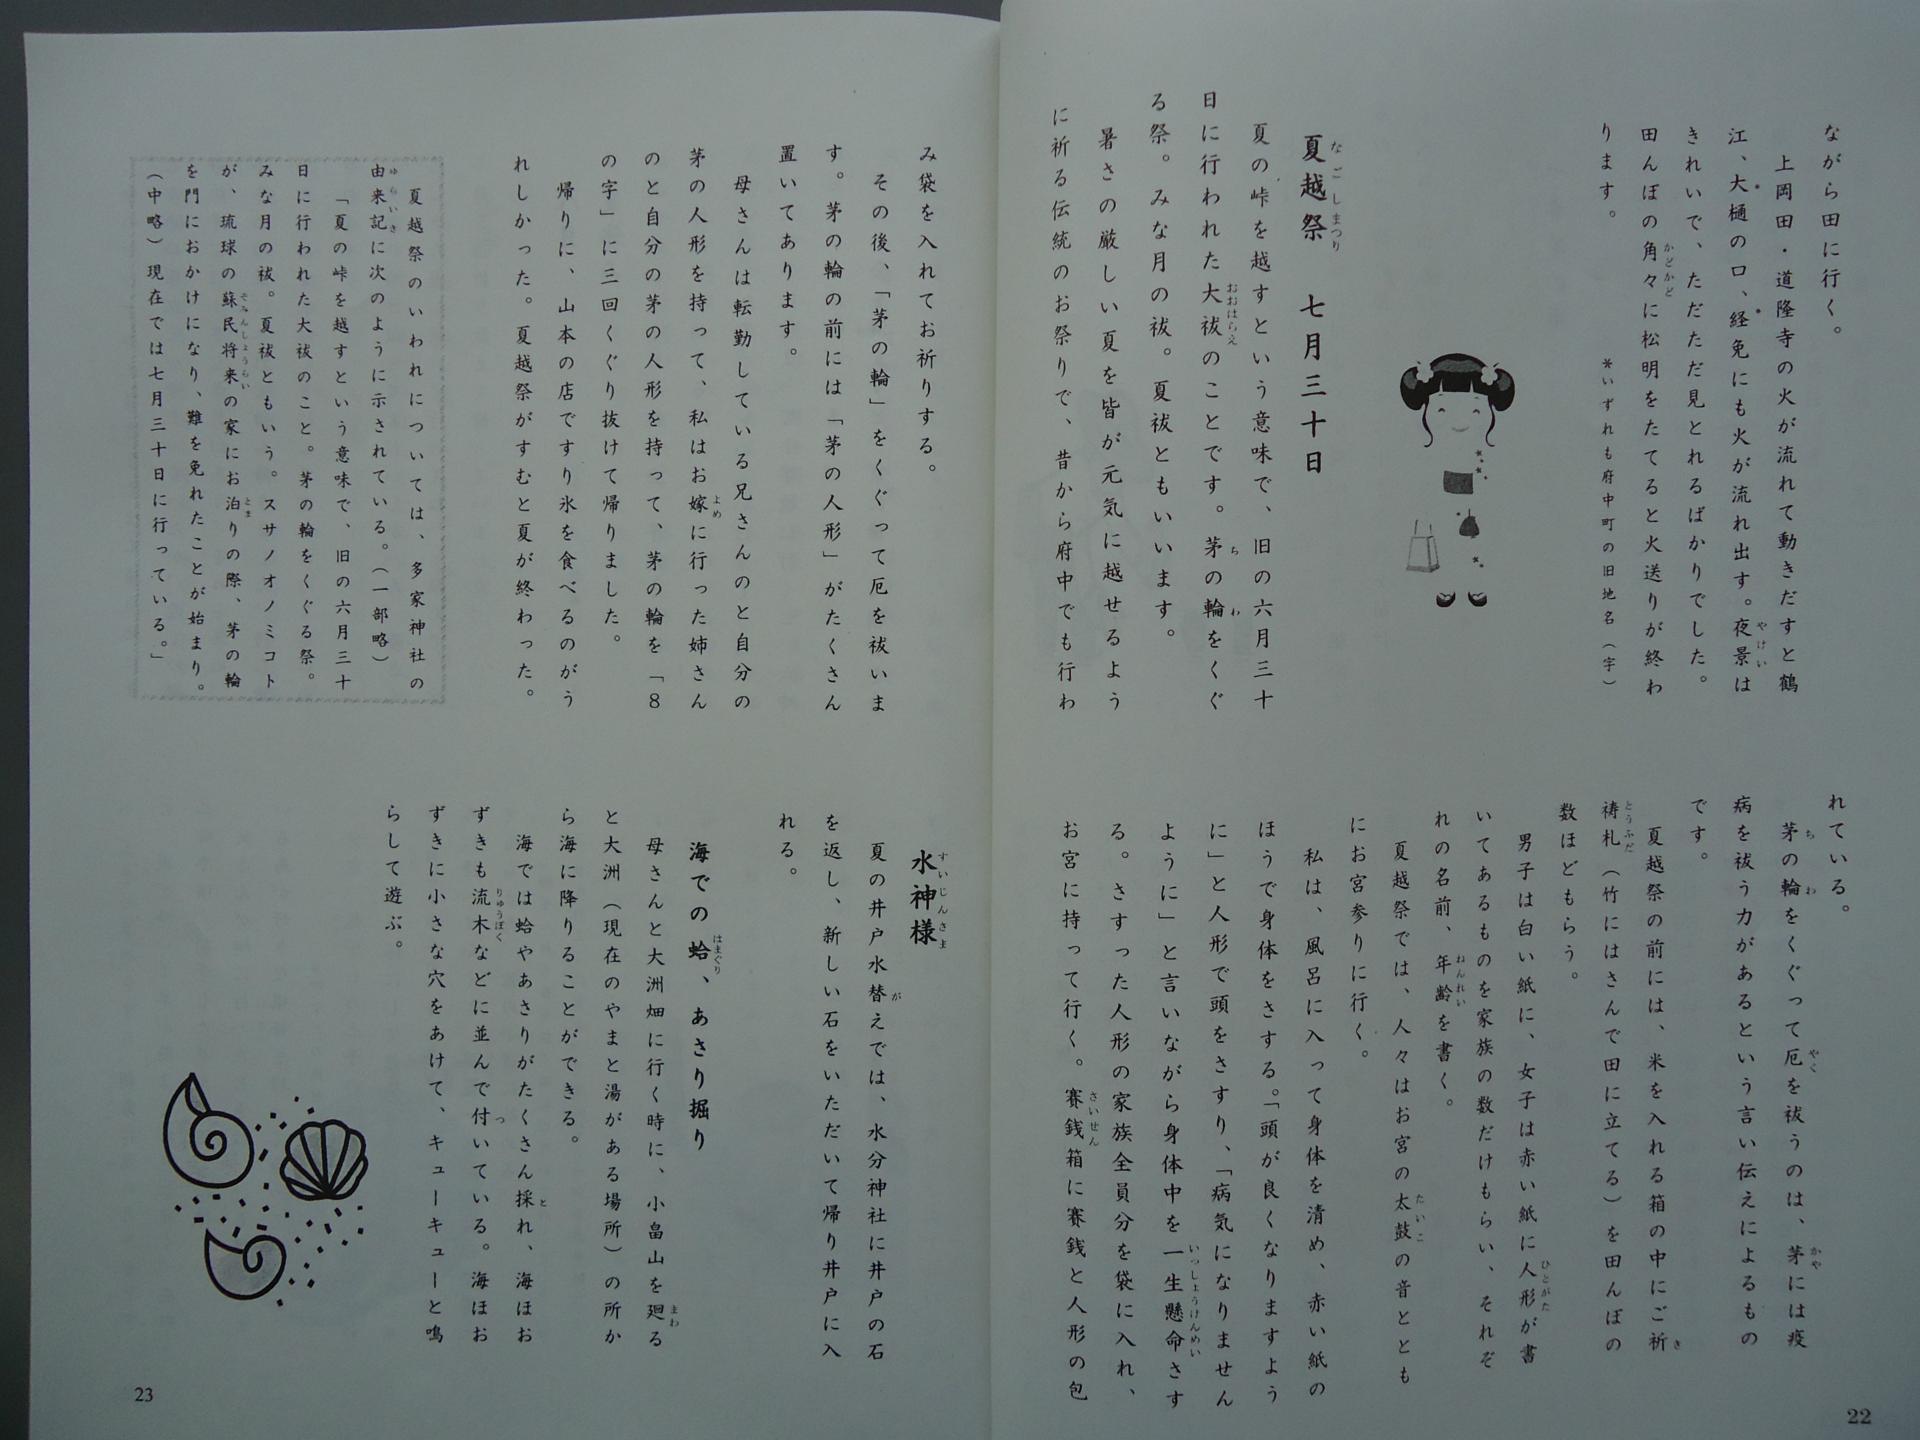 ながら田に行く。
上岡田・道隆寺の火が流れて動きだすと鶴
江、大樋の口、経免にも火が流れ出す。夜景は
きれいで、ただただ見とれるばかりでした。
田んぼの角々に松明をたてると火送りが終わ
ります。
*いずれも府中町の旧地名(字)
夏越祭 七月三十日
夏の峠を越すという意味で、旧の六月三十
日に行われた大祓のことです。茅の輪をくぐ
る祭。みな月の祓。夏祓ともいいます。
暑さの厳しい夏を皆が元気に越せるよう
に祈る伝統のお祭りで、昔から府中でも行わ
れている。
茅の輪をくぐって厄を祓うのは、茅には疫
病を祓う力があるという言い伝えによるもの
です。
夏越祭の前には、米を入れる箱の中にご祈
祷札(竹にはさんで田に立てる)を田んぼの
数ほどもらう。
男子は白い紙に、女子は赤い紙に人形が書
いてあるものを家族の数だけもらい、それぞ
れの名前、年齢を書く。
夏越祭では、人々はお宮の太鼓の音ととも
にお宮参りに行く。
私は、風呂に入って身体を清め、赤い紙の
ほうで身体をさする。「頭が良くなりますよう
に」と人形で頭をさすり、「病気になりません
ように」と言いながら身体中を一生懸命さす
る。さすった人形の家族全員分を袋に入れ、
お宮に持って行く。賽銭箱に賽銭と人形の包
22
み袋を入れてお祈りする。
その後、「茅の輪」をくぐって厄を祓いま
す。茅の輪の前には「茅の人形」がたくさん
置いてあります。
母さんは転勤している兄さんのと自分の
茅の人形を持って、私はお嫁に行った姉さん
のと自分の茅の人形を持って、茅の輪を「8
の字」に三回くぐり抜けて帰りました。
帰りに、山本の店ですり氷を食べるのがう
れしかった。夏越祭がすむと夏が終わった。
夏越祭のいわれについては、多家神社の
由来記に次のように示されている。(一部略)
「夏の峠を越すという意味で、旧の六月三十
日に行われた大祓のこと。茅の輪をくぐる祭。
みな月の祓。夏祓ともいう。スサノオノミコト
が、琉球の蘇民将来の家にお泊りの際、茅の輪
を門におかけになり、難を免れたことが始まり。
(中略)現在では七月三十日に行っている。」
水神様
夏の井戸水替えでは、水分神社に井戸の石
を返し、新しい石をいただいて帰り井戸に入
れる。
海での蛤、あさり掘り
母さんと大洲畑に行く時に、小畠山を廻る
と大洲(現在のやまと湯がある場所)の所か
ら海に降りることができる。
海では蛤やあさりがたくさん採れ、海ほお
ずきも流木などに並んで付いている。海ほお
ずきに小さな穴をあけて、キューキューと鳴
らして遊ぶ。
23